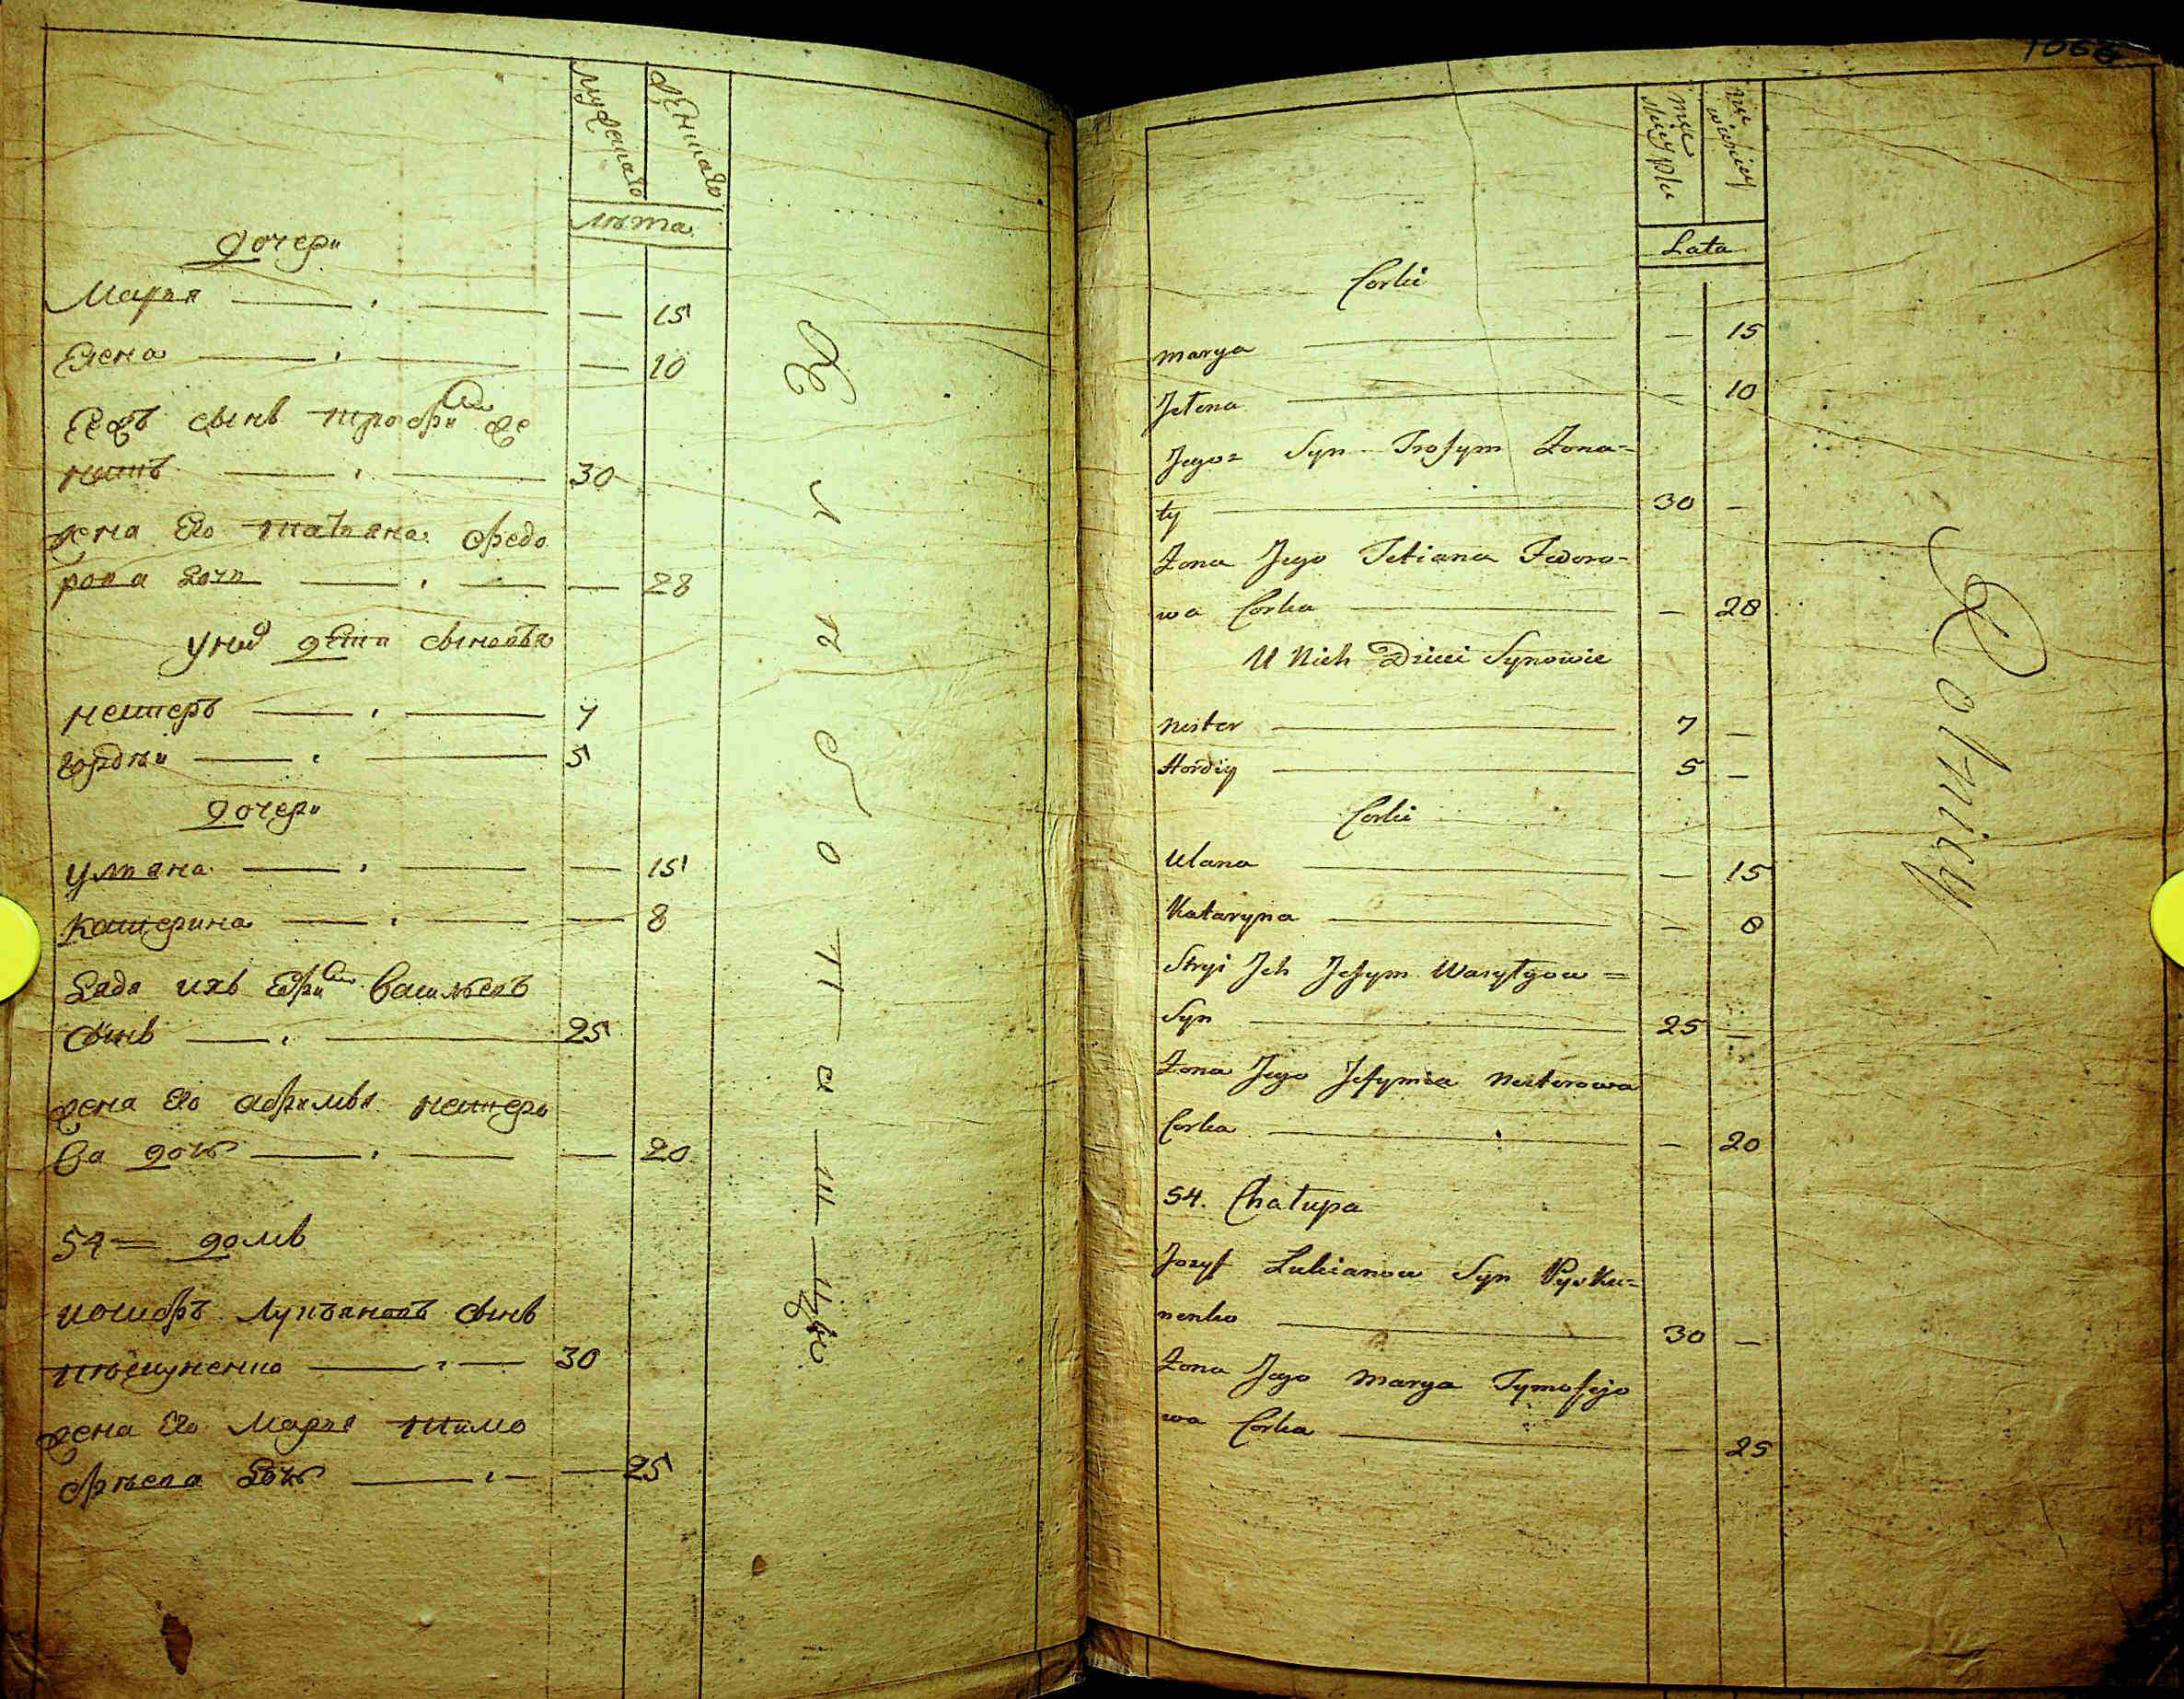 мужеска
женска
лѣта
дочери
Мария — — — 15
Елена — — — 10
Его сынъ трофи м же
натъ — — 30
жена Его татіана федо
рова дочь — — — 28
у них дети сыновья
нестеръ — — 7
гордѣи — — 5
дочери
уляна — — — 15
катерина — — — 8
дядя ихъ Ефим Васильевъ
сынъ — — 25
жена Его афимья нестеро
ва дочь — — — 20
54 = домъ
иосифъ лукъяновъ сынъ
30
жена Его Мария тимо
фѣева дочь — — — 25
1066
Lata
Corki
Marya — — 15
Jełena — — 10
Jego= Syn Trofym Żona=
ty — 30 —
Żona Jego Tetiana Fedoro=
wa Corka — — 28
U Nich Dzieci Synowie
Nester — 7 —
Hordiy — 5 —
Corki
Ulana — — 15
Kataryna — — 8
Stryi Ich Jefym Wasylyow =
Syn — 25 —
Żona Jego Jefymia Nesterowa
Corka — — 20
54. Chałupa
Jozyf Lukianow Syn Pysku=
nenko — 30 —
Żona Jego Marya Tymofijo
wa Corka — — 25
Rolnicy